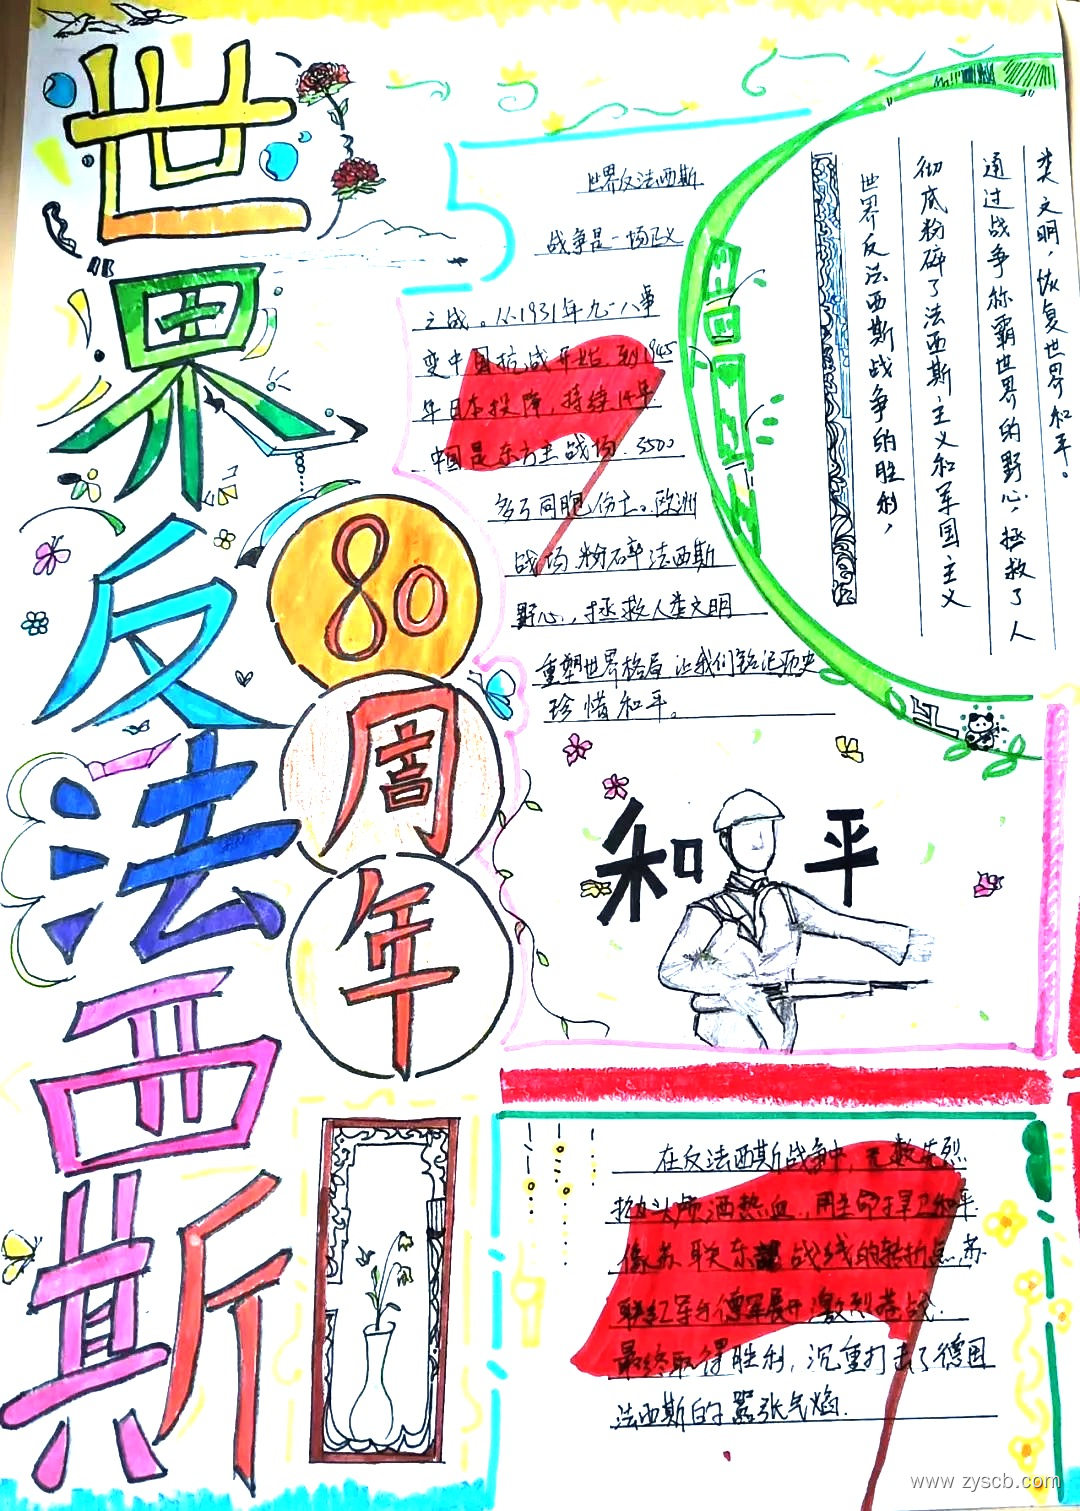 世界反法西斯
80周年
世界反法西斯
战争是一场正义
之战。从1931年九一八事
变中国抗战开始,到1945
年日本投降,持续14年
中国是东方主战场.3500
多万同胞伤亡。欧洲
战场.粉碎法西斯
野心,拯救人类文明
重塑世界格局 让我们铭记历史
珍惜和平。
世界反法西斯战争的胜利,
彻底粉碎了法西斯主义和军国主义
通过战争称霸世界的野心,拯救了人
类文明,恢复世界和平。
和平
在反法西斯战争中,无数先烈
抛头颅洒热血.,用生命捍卫和平.
像苏联东 战线的转折点,苏
联红军与德军展开激烈巷战.
最终取得胜利,沉重打击了德国
法西斯的嚣张气焰.
www.zyscb.com